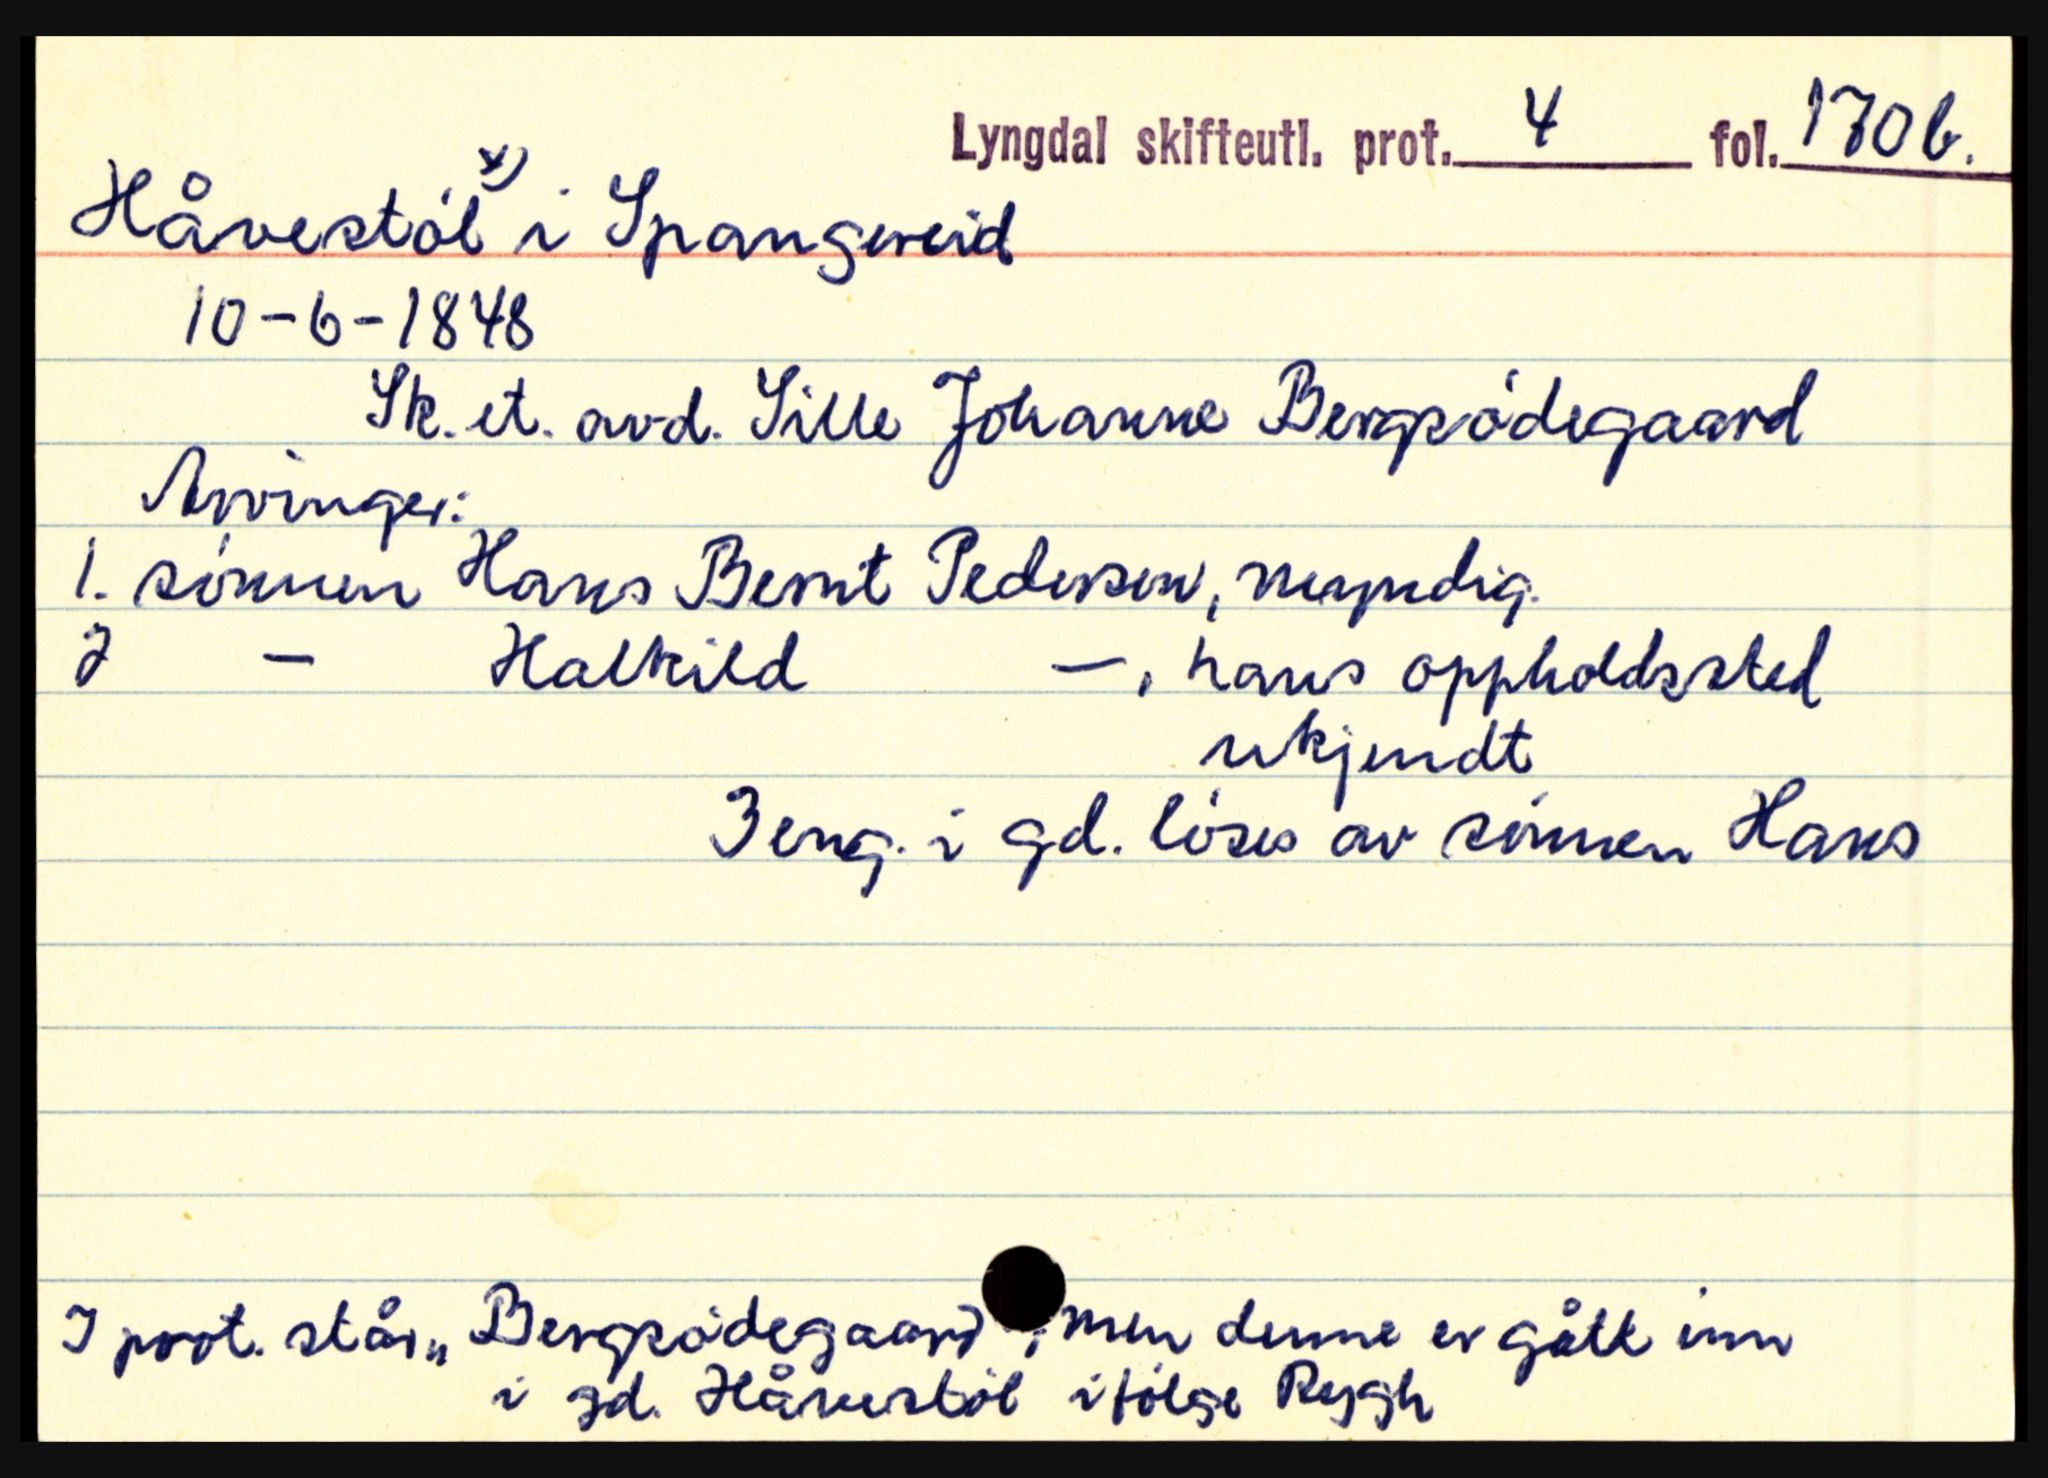 Lyngdal skifteutl. prot. 4 fol. 170b.
Håvestøl x) i Spangereid
10-6-1848
Sk. et. avd. Sille Johanne Bergsødegaard
Arvinger:
1. sønnen Hans Bernt Pedersen, myndig.
2 — Halkild —, hans oppholdssted
ukjendt
3 eng. i gd. löses av sønnen Hans
I prot. står „Bergsødegaard", men denne er gått inn
i gd. Håvestøl ifölge Rygh